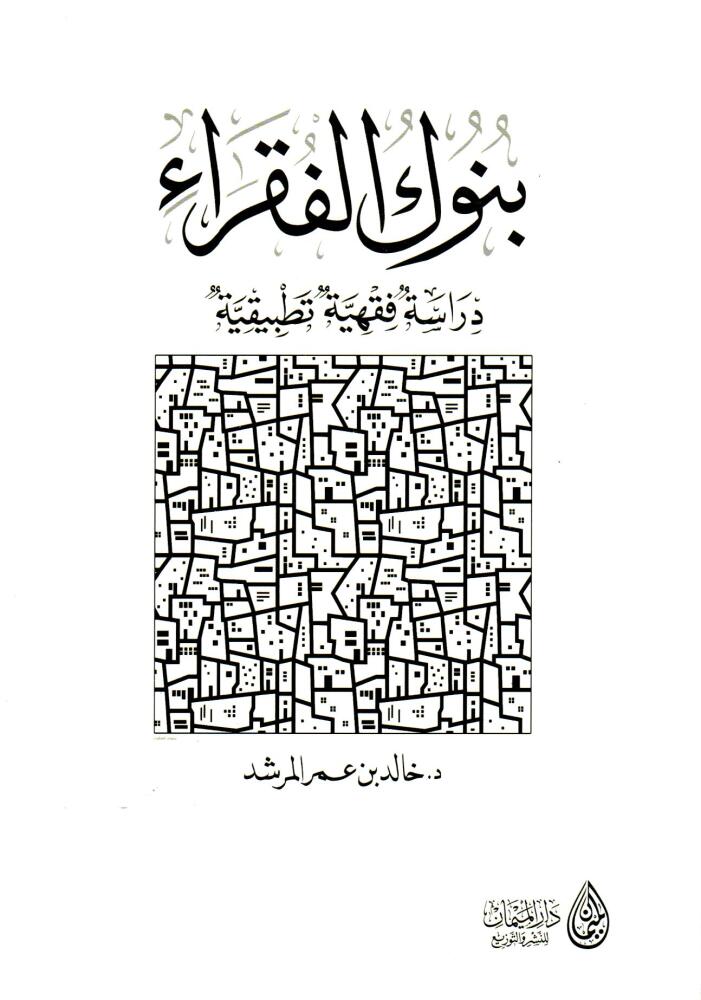 بُنُوكُ الفُقَرَاءِ
دِرَاسَةٌ فِقْهِيَّةٌ تَطْبِيقِيَّةٌ
د. خالد بن عمر المرشد
دَارُ المَيْمَانْ
لِلنَّشْرِ وَالتَّوْزِيعِ
الميمان